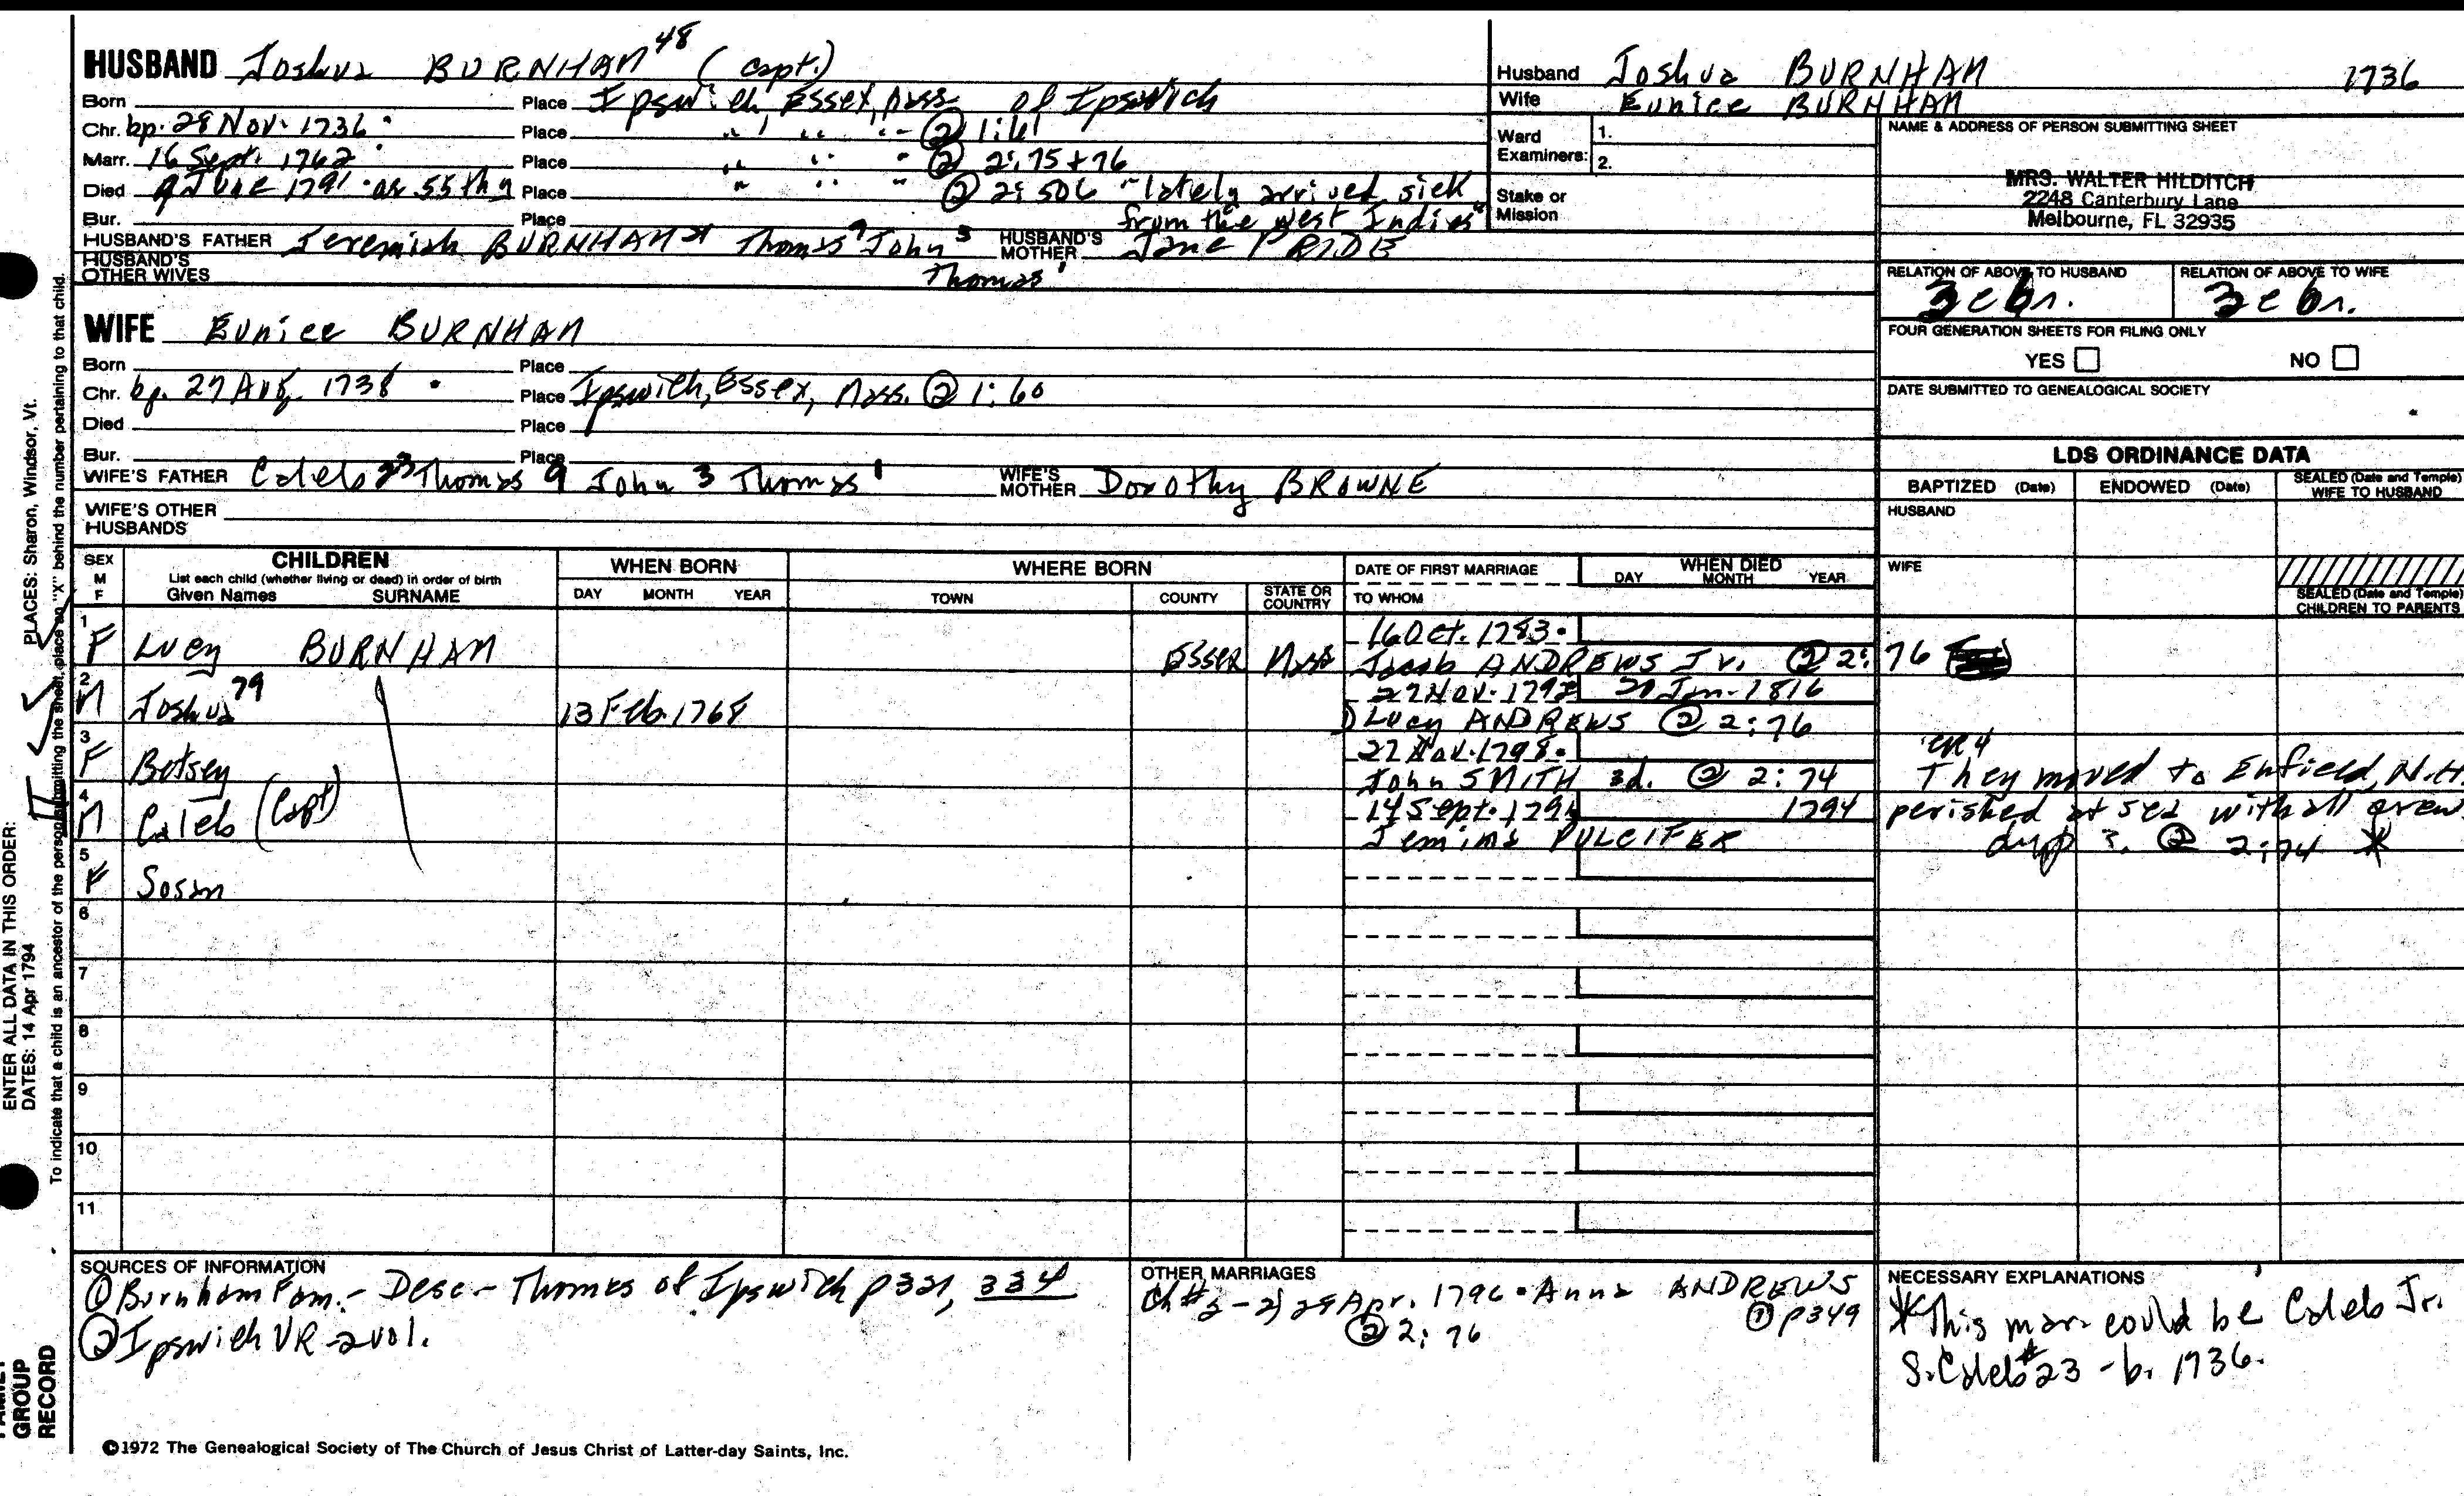 HUSBAND Joshua BURNHAM 48 (Capt.)
Born Place Ipswich, Essex, Mass of Ipswich
Chr. bp. 28 Nov. 1736 Place " " " ② 1:61
Marr. 16 Sept. 1762 Place " " " ② 2:75+76
Died 9 June 1791 - as 55th y Place " " " ② 2:506 "lately arrived sick
Bur. Place from the West Indies"
HUSBAND'S FATHER Jeremiah BURNHAM 21 Thomas 9 John 3 HUSBAND'S MOTHER Jane PRIDE
HUSBAND'S OTHER WIVES Thomas 1
Husband Joshua BURNHAM 1736
Wife Eunice BURNHAM
Ward Examiners: 1.
2.
Stake or Mission
NAME & ADDRESS OF PERSON SUBMITTING SHEET
MRS. WALTER HILDITCH
2248 Canterbury Lane
Melbourne, FL 32935
RELATION OF ABOVE TO HUSBAND RELATION OF ABOVE TO WIFE
FOUR GENERATION SHEETS FOR FILING ONLY
YES NO
DATE SUBMITTED TO GENEALOGICAL SOCIETY
WIFE Eunice BURNHAM
Born Place
Chr. bp. 27 Aug. 1738 Place Ipswich, Essex, Mass. ② 1:60
Died Place
Bur. Place
WIFE'S FATHER Caleb 23 Thomas 9 John 3 Thomas 1 WIFE'S MOTHER Dorothy BROWNE
WIFE'S OTHER HUSBANDS
LDS ORDINANCE DATA
BAPTIZED (Date) ENDOWED (Date) SEALED (Date and Temple) WIFE TO HUSBAND
HUSBAND
WIFE
SEALED (Date and Temple) CHILDREN TO PARENTS
SEX M F CHILDREN WHEN BORN WHERE BORN DATE OF FIRST MARRIAGE WHEN DIED
List each child (whether living or dead) in order of birth
Given Names SURNAME DAY MONTH YEAR TOWN COUNTY STATE OR COUNTRY TO WHOM DAY MONTH YEAR
1 F Lucy BURNHAM Essex Mass 16 Oct. 1783
Jacob ANDREWS Jr. ② 2:76
2 M Joshua 79 13 Feb. 1768 27 Nov. 1792 20 Jan. 1816
Lucy ANDREWS ② 2:76
3 F Betsey 27 Nov. 1798
John SMITH 3d. ② 2:74 They moved to Enfield, N.H.
4 M Caleb (Capt) 14 Sept. 1794 perished at sea with all crew
Jemima PULCIFER dupp ?. ② 2:74 *
5 F Susan
6
7
8
9
10
11
SOURCES OF INFORMATION
① Burnham Fam. - Desc - Thomas of Ipswich p321, 334
② Ipswich VR - 2 vol.
OTHER MARRIAGES
Ch #2 - 2) 28 Apr. 1796 Anna ANDREWS
② 2:76 ① p349
NECESSARY EXPLANATIONS
* This marr could be Caleb Jr.
S. Caleb #23 - b. 1736.
©1972 The Genealogical Society of The Church of Jesus Christ of Latter-day Saints, Inc.
ENTER ALL DATA IN THIS ORDER:
DATES: 14 Apr 1794 PLACES: Sharon, Windsor, Vt.
To indicate that a child is an ancestor of the person submitting the sheet, place an "X" behind the number pertaining to that child.
FAMILY GROUP RECORD